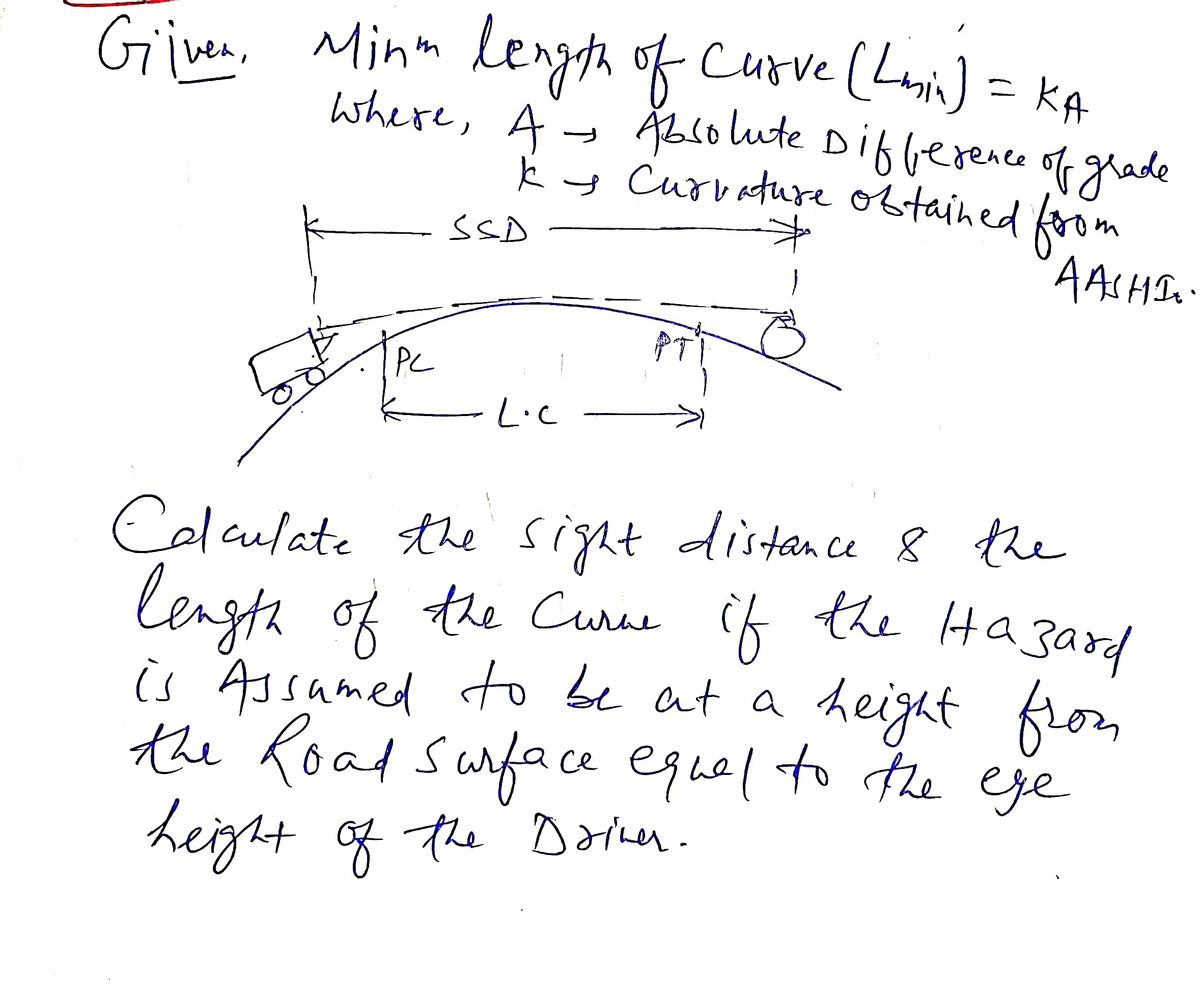 Given. Minm length of Curve (Lmin) = KA
where, A → Absolute Difference of grade
k → Curvature obtained from
AASHTo.
SSD
PC
PT
L.C
Calculate the sight distance & the
length of the Curve if the Hazard
is Assumed to be at a height from
the Road surface equal to the eye
height of the Driver.